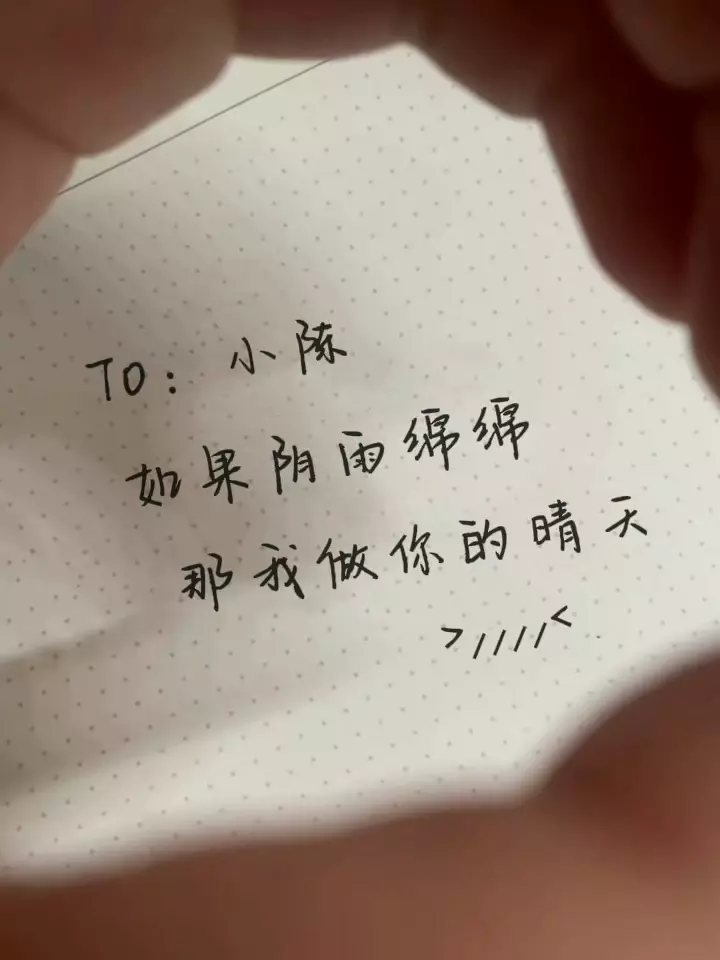 TO: 小陈
如果阴雨绵绵
那我做你的晴天
>/////<